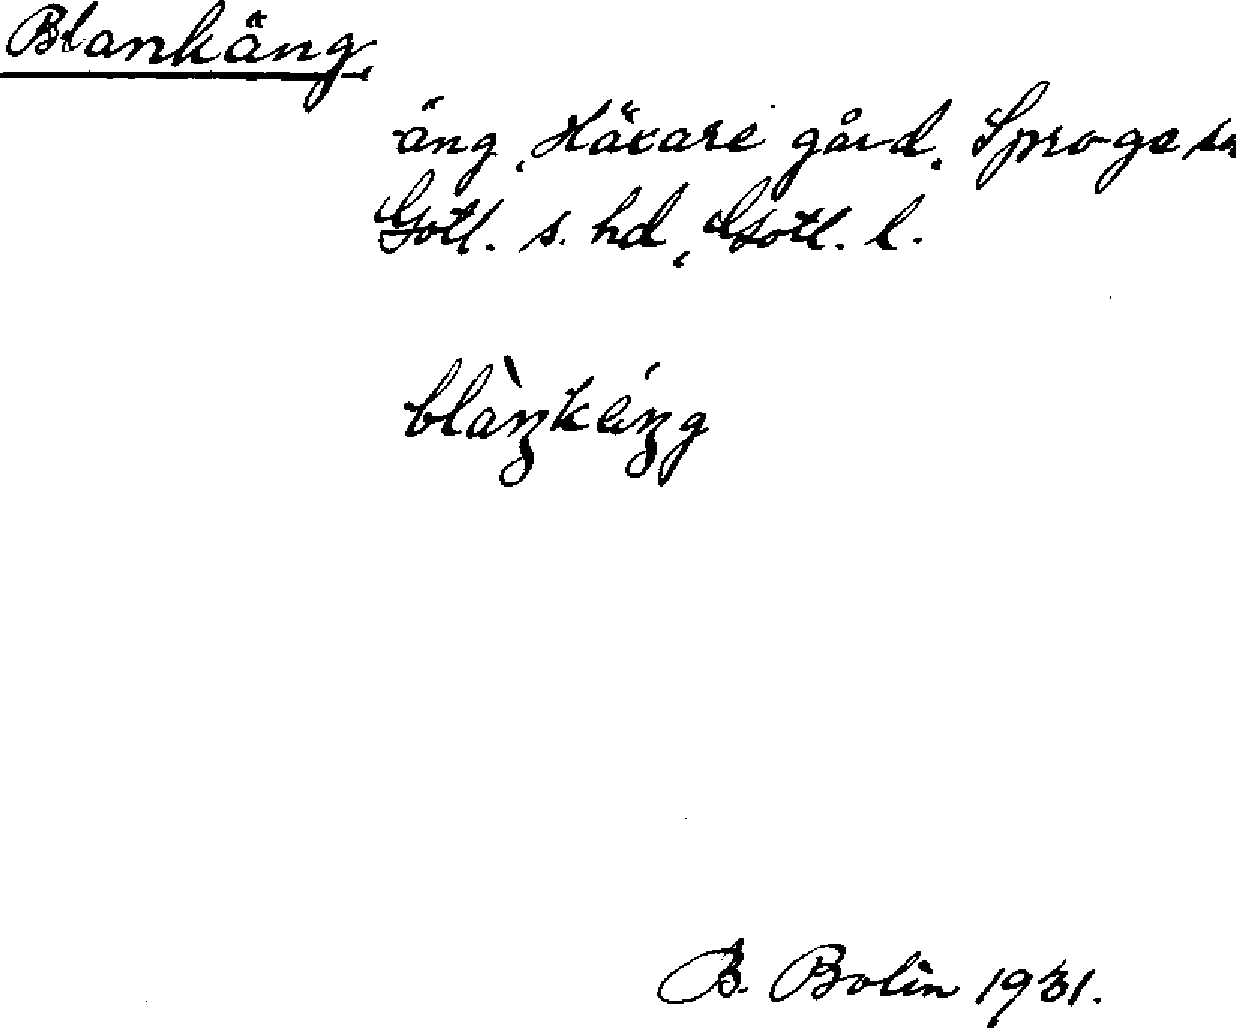 Blankäng
äng, Häxare gård, Sproge sn
Gotl. s. hd, Gotl. l.
blàŋkéŋg
B. Bolin 1931.